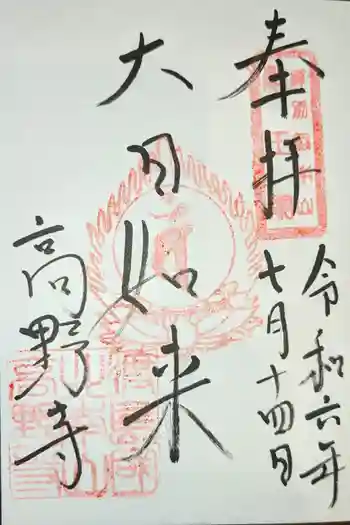 奉拝
令和六年
七月十四日
大日如来
高野寺